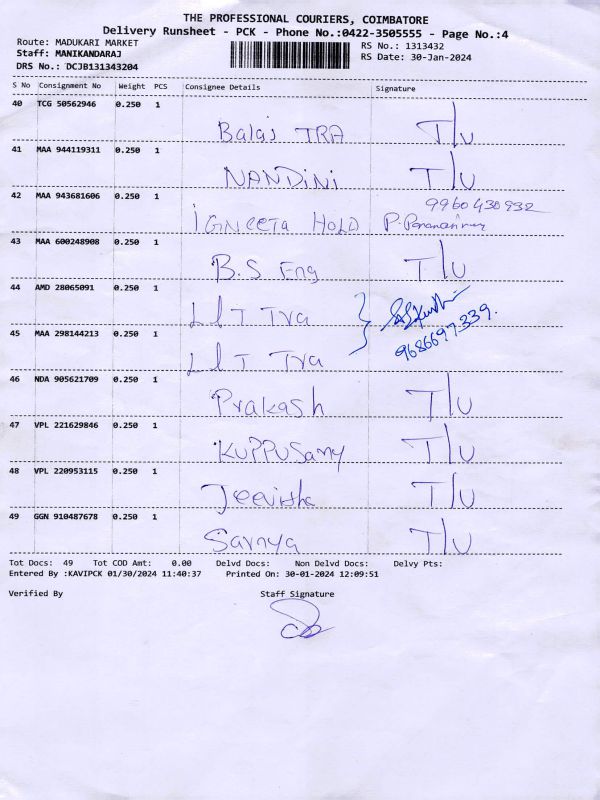 THE PROFESSIONAL COURIERS, COIMBATORE
Delivery Runsheet - PCK - Phone No.:0422-3505555 - Page No.:4
Route: MADUKARI MARKET
RS No.: 1313432
Staff: MANIKANDARAJ
RS Date: 30-Jan-2024
DRS No.: DCJB131343204
S No Consignment No Weight PCS Consignee Details Signature
40 TCG 50562946 0.250 1
Balaj TRA T/U
41 MAA 944119311 0.250 1
NANDiNi T/U
42 MAA 943681606 0.250 1
9960430932
iGNeeTa HOLD
43 MAA 600248908 0.250 1
B.S Eng T/U
44 AMD 28065091 0.250 1
L&T Tra
45 MAA 298144213 0.250 1
9686697339.
L&T Tra
46 NDA 905621709 0.250 1
Prakash T/U
47 VPL 221629846 0.250 1
KUPPUSamy T/U
48 VPL 220953115 0.250 1
Jeevitha T/U
49 GGN 910487678 0.250 1
Sarnya T/U
Tot Docs: 49 Tot COD Amt: 0.00 Delvd Docs: Non Delvd Docs: Delvy Pts:
Entered By :KAVIPCK 01/30/2024 11:40:37 Printed On: 30-01-2024 12:09:51
Verified By Staff Signature